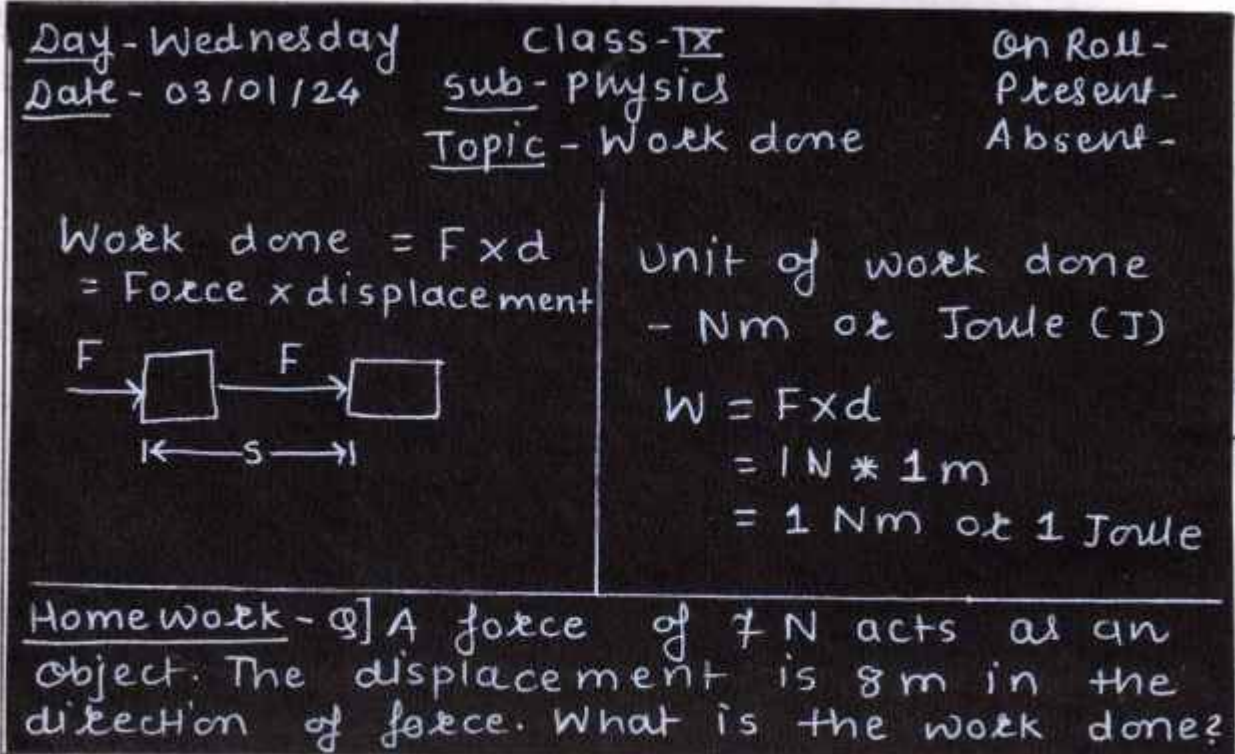 Day - Wednesday
Class - IX
On Roll -
Date - 03/01/24
Sub - Physics
Present -
Topic - Work done
Absent -
Work done = F x d
= Force x displacement
F F
S
Unit of work done
- Nm or Joule (J)
W = F x d
= 1N * 1m
= 1 Nm or 1 Joule
Homework - Q] A force of 7 N acts as an
object. The displacement is 8m in the
direction of force. What is the work done?